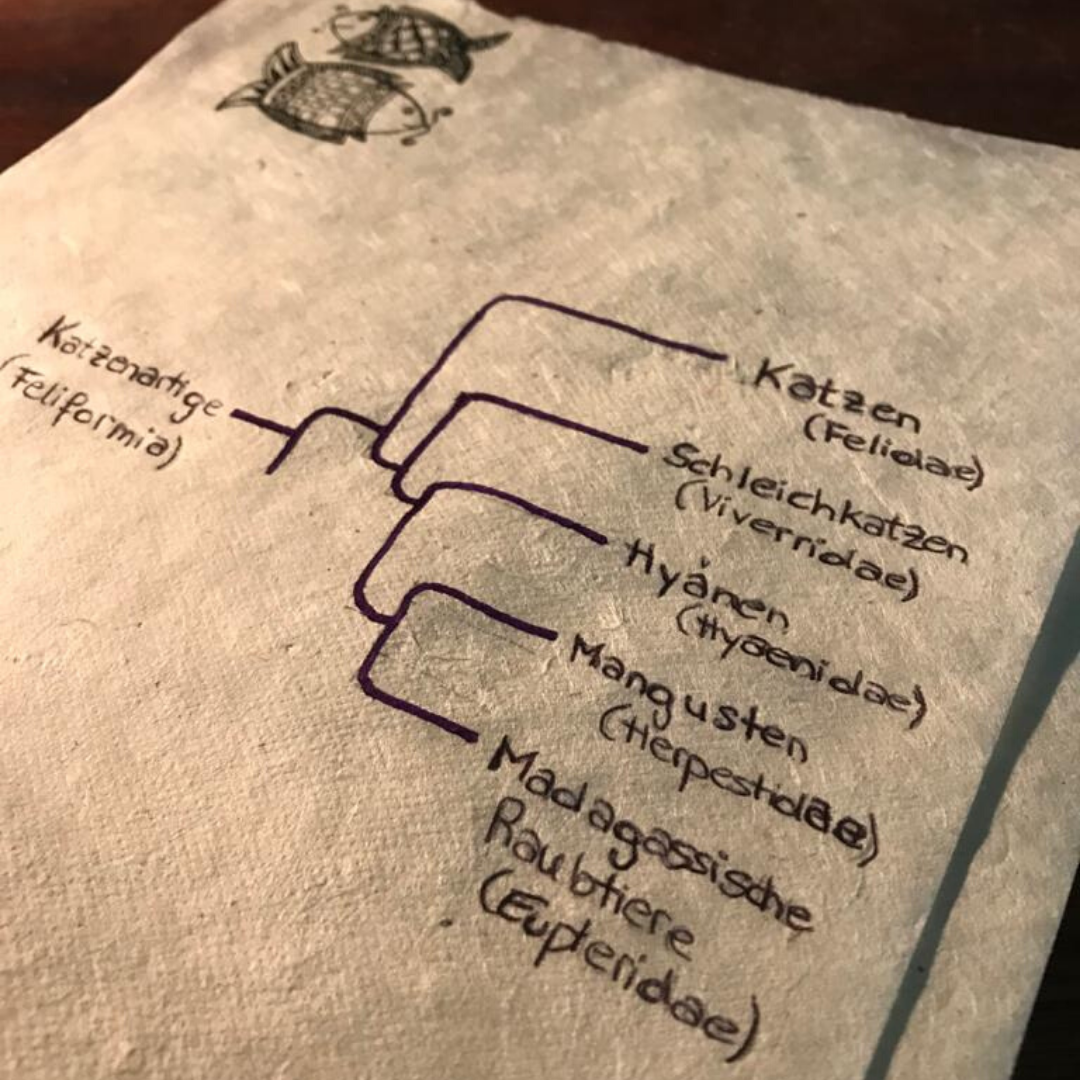 Katzenartige
(Feliformia)
Katzen
(Felidae)
Schleichkatzen
(Viverridae)
Hyänen
(Hyaenidae)
Mangusten
(Herpestidae)
Madagassische
Raubtiere
(Eupleridae)